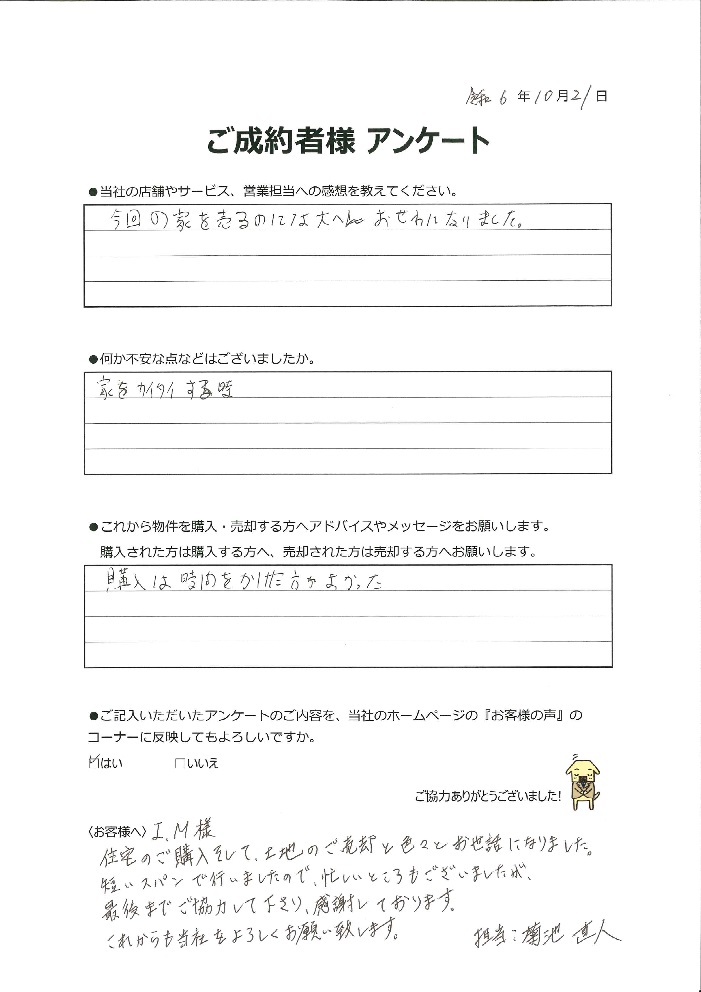 令和6年10月21日
ご成約者様 アンケート
●当社の店舗やサービス、営業担当への感想を教えてください。
今回の家を売るのには大へん おせわになりました。
●何か不安な点などはございましたか。
家をカイタイする時
●これから物件を購入・売却する方へアドバイスやメッセージをお願いします。
購入された方は購入する方へ、売却された方は売却する方へお願いします。
購入は時間をかけた方がよかった
●ご記入いただいたアンケートのご内容を、当社のホームページの『お客様の声』の
コーナーに反映してもよろしいですか。
☑はい □いいえ
ご協力ありがとうございました!
〈お客様へ〉I.M様
住宅のご購入そして、土地のご売却と色々とお世話になりました。
短いスパンで行いましたので、忙しいところもございましたが、
最後までご協力して下さり、感謝しております。
これからも当社をよろしくお願い致します。
担当:菊池 直人